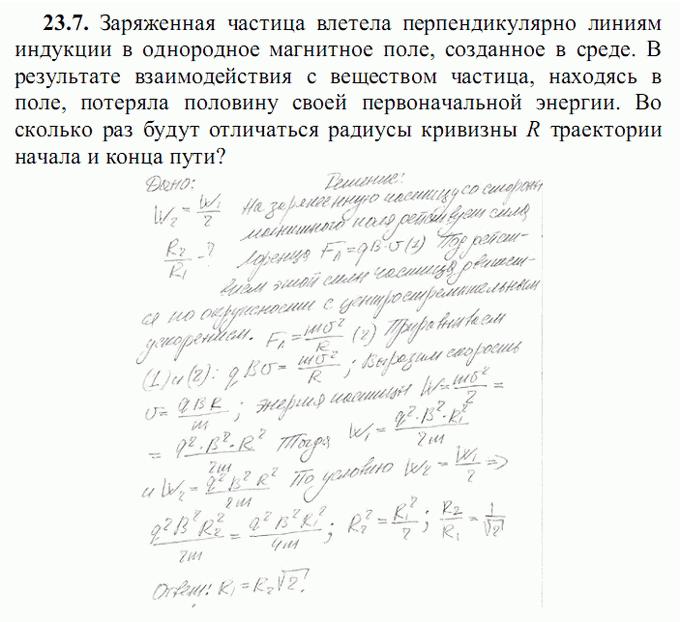 23.7. Заряженная частица влетела перпендикулярно линиям
индукции в однородное магнитное поле, созданное в среде. В
результате взаимодействия с веществом частица, находясь в
поле, потеряла половину своей первоначальной энергии. Во
сколько раз будут отличаться радиусы кривизны R траектории
начала и конца пути?
Дано: Решение:
W₂ = W₁/2 На заряженную частицу со стороны
магнитного поля действует сила
R₂/R₁ - ? Лоренца Fл = qBυ (1) Под дейст-
вием этой силы частица движет-
ся по окружности с центростремительным
ускорением. Fл = mυ²/R (2) Приравниваем
(1) и (2): qBυ = mυ²/R ; Выразим скорость
υ = qBR/m ; энергия частицы W = mυ²/2 =
= q²·B²·R²/2m Тогда W₁ = q²·B²·R₁²/2m
и W₂ = q²B²R²/2m По условию W₂ = W₁/2 =>
q²B²R₂²/2m = q²B²R₁²/4m ; R₂² = R₁²/2 ; R₂/R₁ = 1/√2
Ответ: R₁ = R₂√2.